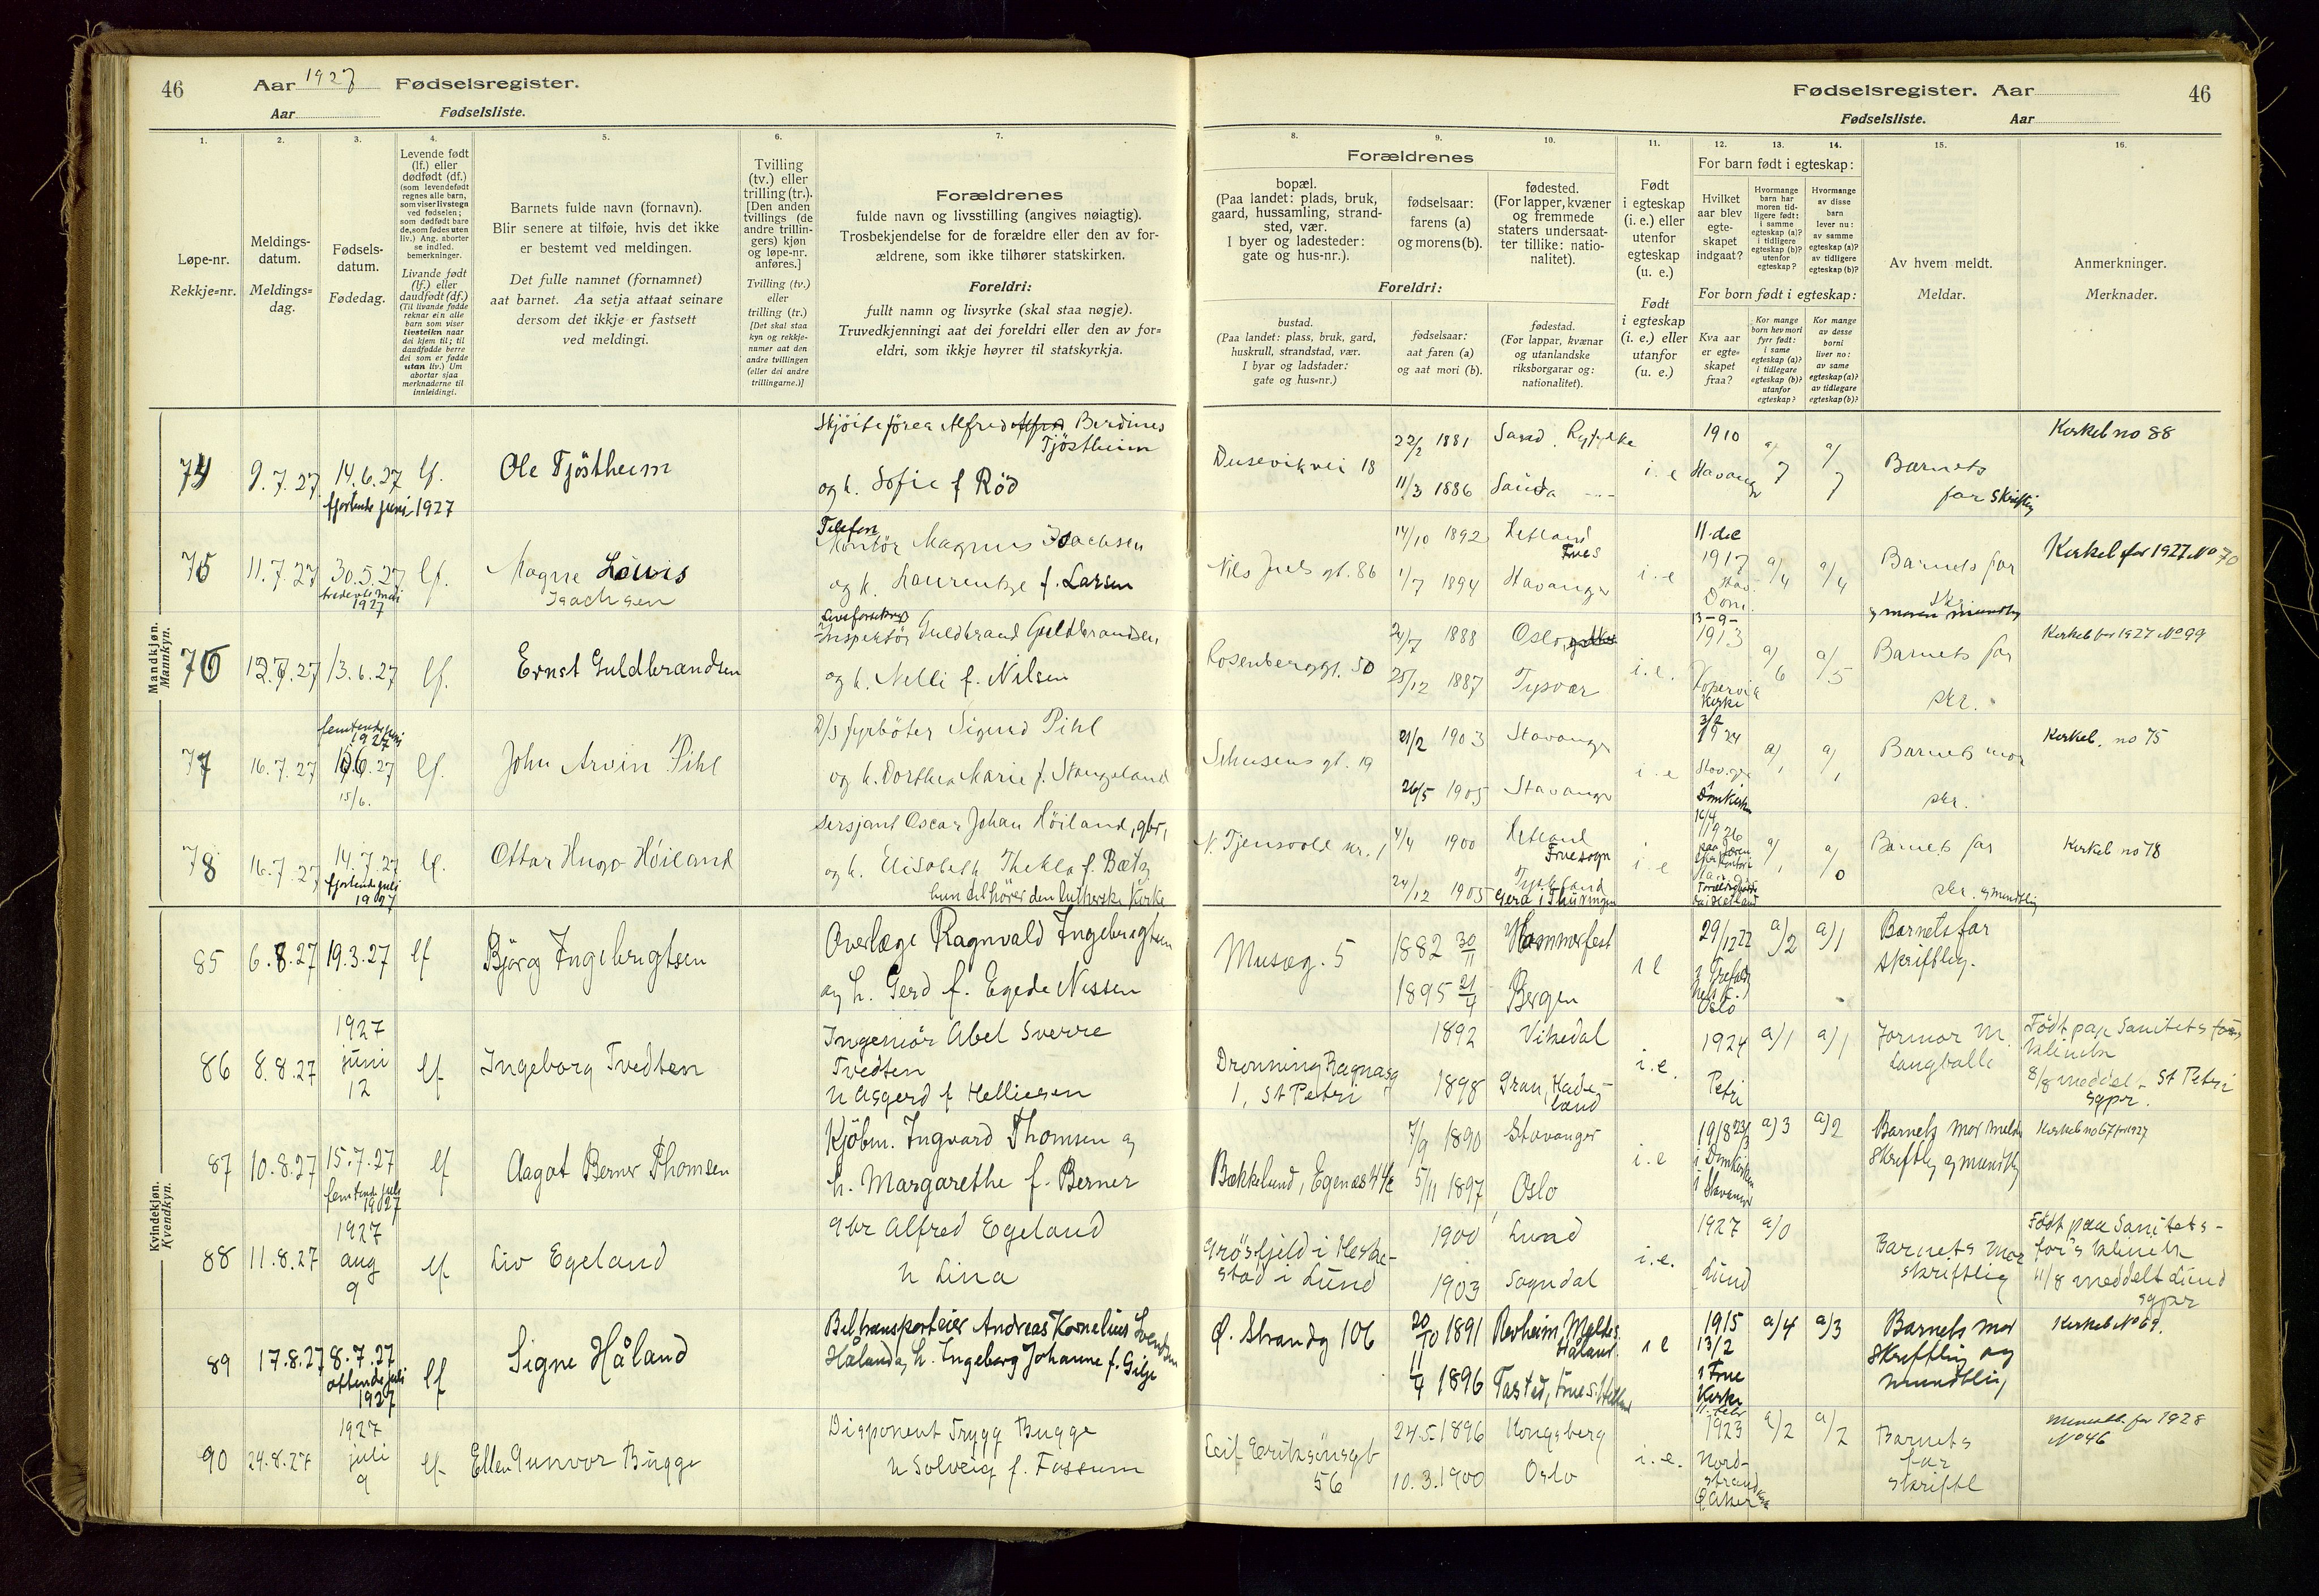 46 Aar 1927 Fødselsregister.
Aar Fødselsliste.
Fødselsregister. Aar 46
Fødselsliste. Aar
1. 2. 3. 4. 5. 6. 7. 8. 9. 10. 11. 12. 13. 14. 15. 16.
Løpe-nr.
Rekkje=nr.
Meldings-
datum.
Meldings=
dag.
Fødsels-
datum.
Fødedag.
Levende født
(lf.) eller
dødfødt (df.)
(som levendefødt
regnes alle barn,
som viser livstegn
ved fødselen;
som dødfødt bare
de, som fødes uten
liv.) Ang. aborter
se indled.
bemerkninger.
Livande født
(lf.) eller
daudfødt (df.)
(Til livande fødde
reknar ein alle
barn som viser
livsteikn naar
dei kjem til; til
daudfødde berre
dei som er fødde
utan liv.) Um
abortar sjaa
merknaderne til
innleidingi.
Barnets fulde navn (fornavn).
Blir senere at tilføie, hvis det ikke
er bestemt ved meldingen.
Det fulle namnet (fornamnet)
aat barnet. Aa setja attaat seinare
dersom det ikkje er fastsett
ved meldingi.
Tvilling
(tv.) eller
trilling (tr.).
[Den anden
tvillings (de
andre trillin-
gers) kjøn
og løpe-nr.
anføres.]
Tvilling (tv.)
eller
trilling (tr.)
[Det skal staa
kyn og rekkje-
numer aat den
andre tvillingen
(eller dei andre
trillingarne.)]
Forældrenes
fulde navn og livsstilling (angives nøiagtig).
Trosbekjendelse for de forældre eller den av for-
ældrene, som ikke tilhører statskirken.
Foreldri:
fullt namn og livsyrke (skal staa nøgje).
Truvedkjenningi aat dei foreldri eller den av for=
eldri, som ikkje høyrer til statskyrkja.
Forældrenes
bopæl.
(Paa landet: plads, bruk,
gaard, hussamling, strand-
sted, vær.
I byer og ladesteder:
gate og hus-nr.).
fødselsaar:
farens (a)
og morens (b).
fødested.
(For lapper, kvæner
og fremmede
staters undersaat-
ter tillike: natio-
nalitet).
Foreldri:
bustad.
(Paa landet: plass, bruk, gard,
huskrull, strandstad, vær.
I byar og ladstader:
gate og hus=nr.)
fødselsaar:
aat faren (a)
og aat mori (b).
fødestad.
(For lappar, kvænar
og utanlandske
riksborgarar og:
nationalitet).
Født
i egteskap
(i. e.) eller
utenfor
egteskap
(u. e.)
Født
i egteskap
(i. e.) eller
utanfor
(u. e.)
For barn født i egteskap:
Hvilket
aar blev
egte-
skapet
indgaat?
Hvormange
barn har
moren tid-
ligere født:
i samme
egteskap (a)?
i tidligere
egteskap (b)?
utenfor
egteskap?
Hvormange
av disse
barn
lever nu:
av samme
egteskap (a)?
av tidligere
egteskap (b)?
For born født i egteskap:
Kva aar
er egte=
skapet
fraa?
Kor mange
born hev mori
fyrr født:
i same
egteskap (a)?
i tidlegare
egteskap (b)?
utanfor
egteskap?
Kor mange
av desse
borni
liver no:
av same
egteskap (a)?
av tidlegare
egteskap (b)?
Av hvem meldt.
Meldar.
Anmerkninger.
Merknader.
Mandkjøn.
Mannkyn.
74 9.7.27 14.6.27 lf. Ole Tjöstheim
fjortende juni 1927
Skjöiteförer Alfred Berdines
Tjöstheim
og h. Sofie f Röd
Dusevikvei 18
22/2 1881 Sand, Ryfylke
11/3 1886 Sauda
i. e 1910 Stavanger a/7 a/7
Barnets
far skriftlig
Kirkeb no 88
75 11.7.27 30.5.27 lf. Magne Louis
Isachsen
tredevte mai
1927
Telefon
Montör Magnus Isachsen
og h. Laurentze f. Larsen
Nils Juels gt. 86
14/10 1892 Hetland
Frues
1/7 1894 Stavanger
i. e 11. dec
1917
Stav.
Dom.
a/4 a/4
Barnets far
skr.
og moren mundtlig
Kirkeb for 1927 No 70
76 12.7.27 13.6.27 lf. Ernst Guldbrandsen
Inspektör Guldbrand Guldbrandsen
og h. Nelli f. Nilsen
Rosenberggt. 50
24/7 1888 Oslo
25/12 1887 Tysvær
i. e. 13-9-
1913
Kopervik
Kirke
a/6 a/5
Barnets far
skr.
Kirkeb for 1927 No 99
77 16.7.27 15.6.27 lf. John Arvin Pihl
femtende juni
1927
15/6.
D/S fyrböter Sigurd Pihl
og h. Dorthea Marie f. Stangeland
Sehusens gt. 19
21/2 1903 Stavanger
26/5 1905 Stavanger
i. e 3/2
1924
Stavanger
Domkirken
a/1 a/1
Barnets mor
skr.
Kirkeb. no 75
78 16.7.27 14.7.27 lf. Ottar Hugo Höiland
fjortende juli
1927
Sersjant Oscar Johan Höiland, gbr,
og h. Elisabeth Thekla f. Bætz
hun tilhører den lutherske Kirke
N. Tjensvold nr. 1
4/4 1900 Hetland
Fruesogn
24/12 1905 Tyskland
Gera i Thüringen
i e 16/4
1926
a/1 a/0
Barnets far
skr. og mundtlig
Kirkeb no 78
Kvindekjøn.
Kvendkyn.
85 6.8.27 19.3.27 lf Björg Ingebrigtsen
Overlæge Ragnvald Ingebrigtsen
og h. Gerd f. Egede Nissen
Musæg. 5
1882 30/11 Hammerfest
1895 21/4 Bergen
i e 29/12 22
i Trefoldig
hets k.
Oslo
a/2 a/1
Barnets far
skriftlig.
86 8.8.27 1927
juni
12
lf Ingeborg Tvedten
Ingeniör Abel Sverre
Tvedten
h Asgerd f Helliesen
Dronning Ragnasg
1, St Petri
1892 Vikedal
1898 Gran, Hade-
land
i. e. 1924
Petri
a/1 a/1
Jormor M.
Langballe
Födt paa Sanitets for
klinik
8/8 meddel. St Petri
sgpr.
87 10.8.27 15.7.27 lf Aagot Berner Thomsen
femtende juli
1927
Kjöbm. Ingvard Thomsen og
h. Margarethe f. Berner
Bækkelund, Egenæs
7/9 1890 Stavanger
5/11 1897 Oslo
i. e 1918 23/3
i Domkirken
i Stavanger
a/3 a/2
Barnets mor meldt
Skriftlig og mundtlig
Kirkeb no 67 for 1927
88 11.8.27 1927
aug
9
lf Liv Egeland
gbr Alfred Egeland
h Lina
Grösfjeld i Heske-
stad i Lund
1900 Lund
1903 Sogndal
i. e. 1927
Lund
a/0
Barnets Mor
skriftlig
Födt paa Sanitets-
for's klinik
11/8 meddelt Lund
sgpr
89 17.8.27 8.7.27 lf Signe Håland
ottende juli
1927
Biltransporteier Andreas Kornelius Svendsen
Håland og h. Ingeborg Johanne f. Gilje
Ø. Strandg 106
20/10 1891 Revheim, Malde
Håland.
11/4 1896 Tasted, Frue s. Hetland
i e 1915
13/2
i Frue
Kirke
a/4 a/3
Barnets mor
skriftlig og
mundtlig
Kirkeb No 69.
90 24.8.27 1927
juli
9
lf Ellen Gunvor Bugge
Disponent Trygg Bugge
h Solveig f. Fossum
Leif Eriksönsgt
56
24.5.1896 Kongsberg
10.3.1900 Oslo
i. e. 11 febr
1923
Nord-
strand
Ø. Aker
a/2 a/2
Barnets
far
skriftl
for 1928
No 46